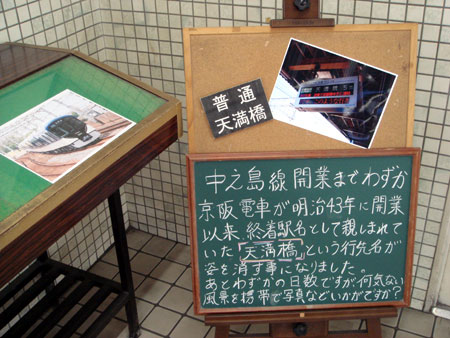 普通
天満橋
中之島線開業までわずか
京阪電車が明治43年に開業
以来、終着駅名として親しまれて
いた「天満橋」という行先名が
姿を消す事になりました。
あとわずかの日数ですが何気ない
風景を携帯で写真などいかがですか?